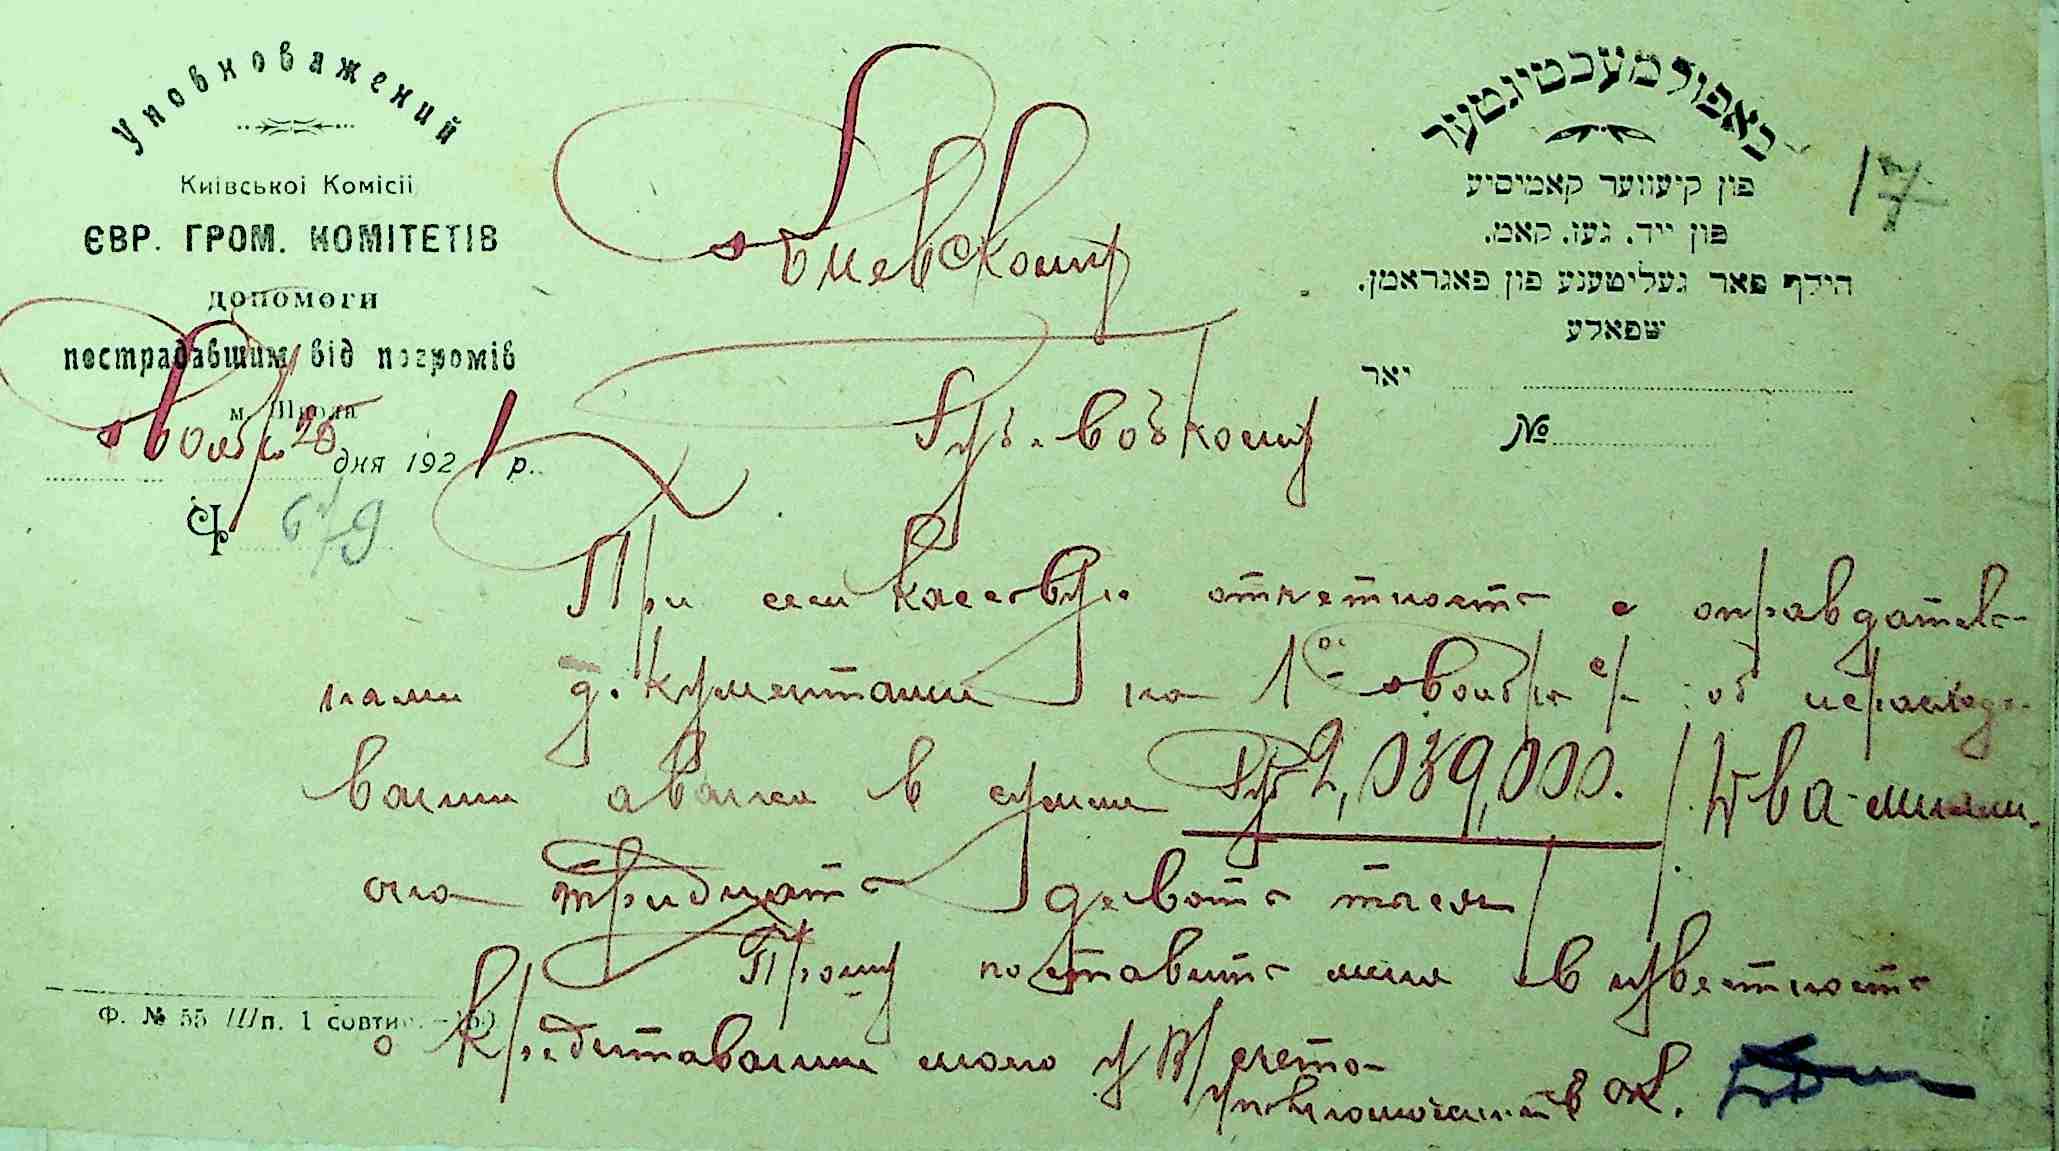 Уповноважений
Київськоі Комісіі
ЄВР. ГРОМ. КОМІТЕТІВ
допомоги
пострадавшим від погромів
м. Шпола
25 дня 1921 р.
Ч. 679
באפולמעכטיגטער
פון קיעווער קאמיסיע
פון ייד. געז. קאמ.
הילף פאר געליטענע פון פאגראמן.
שפאלע
יאר
№
17
Губ. Вобкому
При сем кассовую отчетность с оправдатель-
ными документами на 1ое ноября с/г об израсходо-
вании аванса в сумме Руб 2,039,000. / Два-миллi-
она тридцать девять тысяч/
Прошу поставить меня в известность
о кредитовании моего у В/ счета
Уповномоченный
Ф. № 55 Шп. 1 совтип.—150